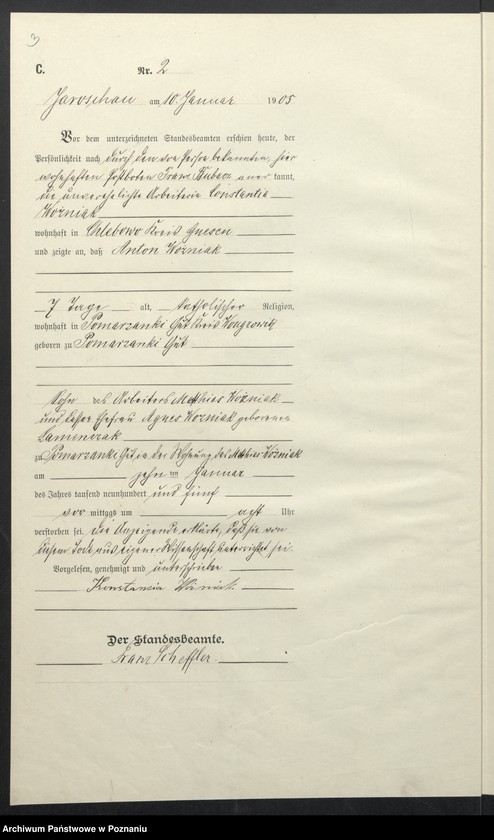 3
C. Nr. 2
Jaroschau am 10. Januar 1905
Vor dem unterzeichneten Standesbeamten erschien heute, der
Persönlichkeit nach durch den von Person bekannten, hier
wohnhaften Postboten Franz Kubacz anerkannt,
die unverehelichte Arbeiterin Constantia
Woźniak
wohnhaft in Chlebowo Kreis Gnesen
und zeigte an, daß Anton Woźniak
7 Tage alt, katholischer Religion,
wohnhaft in Pomarzanki Gut Kreis Wongrowitz
geboren zu Pomarzanki Gut
Sohn des Arbeiters Mathias Woźniak
und dessen Ehefrau Agnes Woźniak geborenen
zu Pomarzanki Gut in der Wohnung des Woźniak
am zehn ten Januar
des Jahres tausend neunhundert und fünf
vor mittags um acht Uhr
verstorben sei. Die Anzeigende erklärte, daß sie von
diesem Tode aus eigener Wissenschaft unterrichtet sei.
Vorgelesen, genehmigt und unterschrieben
Konstancia
Der Standesbeamte.
Scheffler.
Archiwum Państwowe w Poznaniu